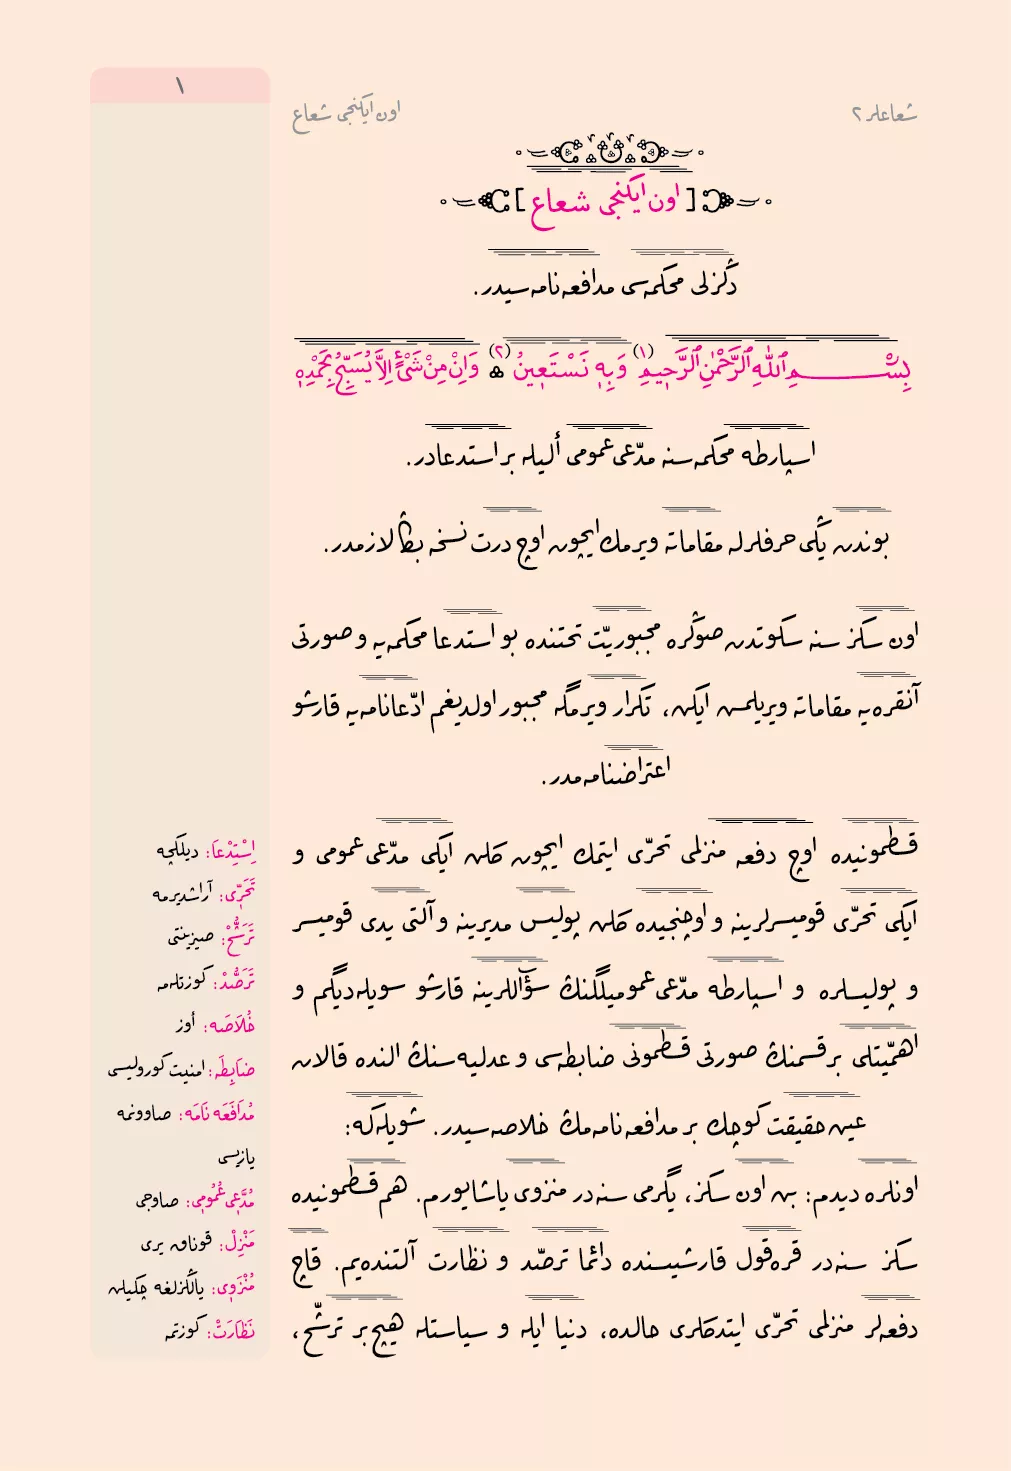 ١
شعاعلر ٢
اون ایكنجی شعاع
[اون ایكنجی شعاع]
دڭزلی محكمه‌سی مدافعه‌نامه‌سیدر.
بِسْمِ اللّٰهِ الرَّحْمٰنِ الرَّحٖيمِ (١) وَبِهٖ نَسْتَعٖينُ (٢) ❊ وَاِنْ مِنْ شَیْءٍ اِلَّا يُسَبِّحُ بِحَمْدِهٖ
اسپارطه محكمه‌سنه مدّعی عمومی ألیله بر استدعادر.
بوندن یڭی حرفلرله مقاماته ویرمك ایچون اوچ درت نسخه بڭا لازمدر.
اون سكز سنه سكوتدن صوڭره مجبوریّت تحتنده بو استدعا محكمه‌یه و صورتی
آنقره‌یه مقاماته ویریلمس ایكن، تكرار ویرمگه مجبور اولدیغم ادّعانامه‌یه قارشو
اعتراضنامه‌مدر.
قسطمونیده اوچ دفعه منزلمی تحرّی ایتمك ایچون كلن ایكی مدّعی عمومی و
ایكی تحرّی قومیسرلرینه و اوچنجیده كلن پولیس مدیرینه و آلتی یدی قومیسر
و پولیسلره و اسپارطه مدّعی عمومیلگنڭ سؤاللرینه قارشو سویله‌دیگم و
اهمّیتلی بر قسمنڭ صورتی قسطمونی ضابطه‌سی و عدلیه‌سنڭ النده قالان
عین حقیقت كوچك بر مدافعه‌نامه‌مڭ خلاصه‌سیدر. شویله‌كه:
اونلره دیدم: بن اون سكز، یگرمی سنه‌در منزوی یاشایورم. هم قسطمونیده
سكز سنه‌در قره‌قول قارشیسنده دائما ترصّد و نظارت آلتنده‌یم. قاچ
دفعه‌لر منزلمی تحرّی ایتدكلری حالده، دنیا ایله و سیاستله هیچ بر ترشّح،
اِسْتِدْعَا: دیلكچه
تَحَرّٖی: آراشدیرمه
تَرَشُّحْ: صیزینتی
تَرَصُّدْ: كوزتله‌مه
خُلَاصَه: أوز
ضَابِطَه: امنیت كورولیسی
مُدَافَعَه نَامَه: صاوونمه
یازیسی
مُدَّعٖیِ عُمُومٖی: صاوجی
مَنْزِلْ: قوناق یری
مُنْزَوٖی: یاڭلزلغه چكیلن
نَظَارَتْ: كوزتمه